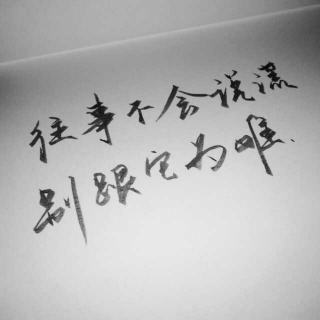 往事不会说谎
别跟它为唯.